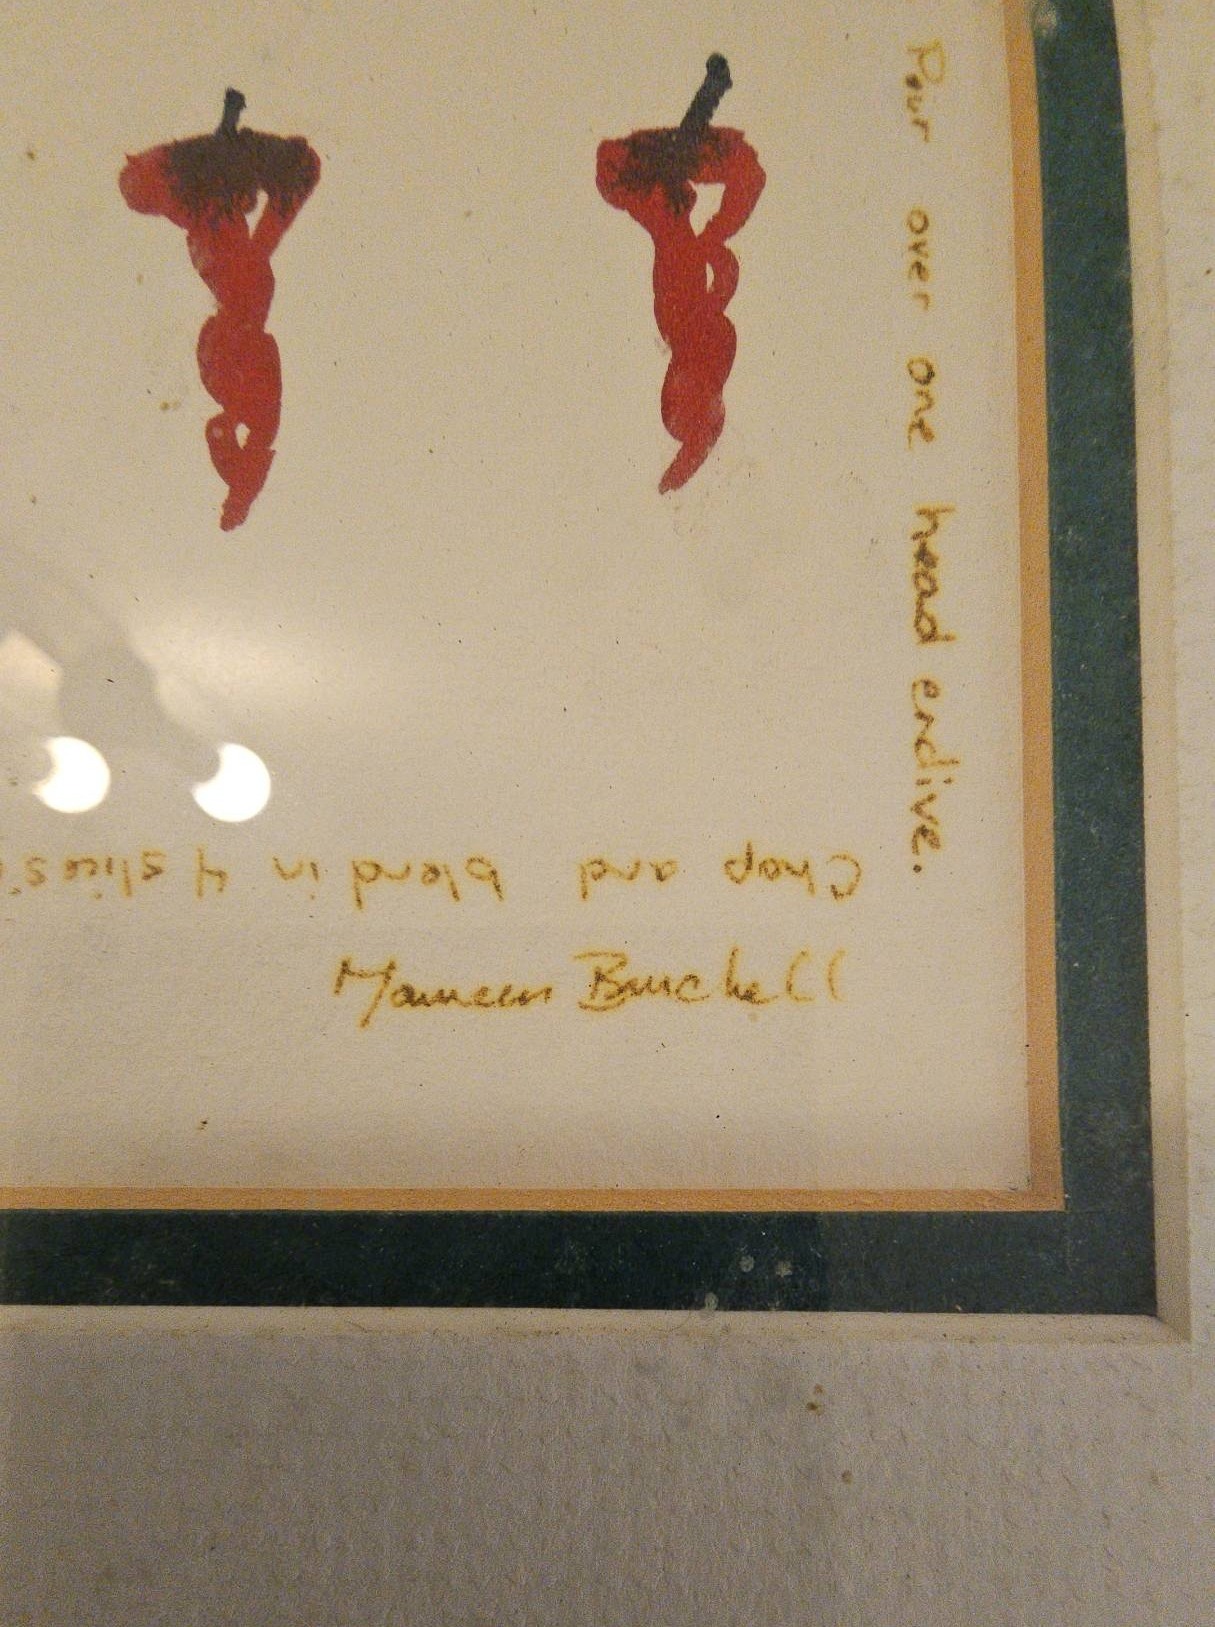 Pour over one head endive.
Chop and blend in 4 slices
Maureen Burchell